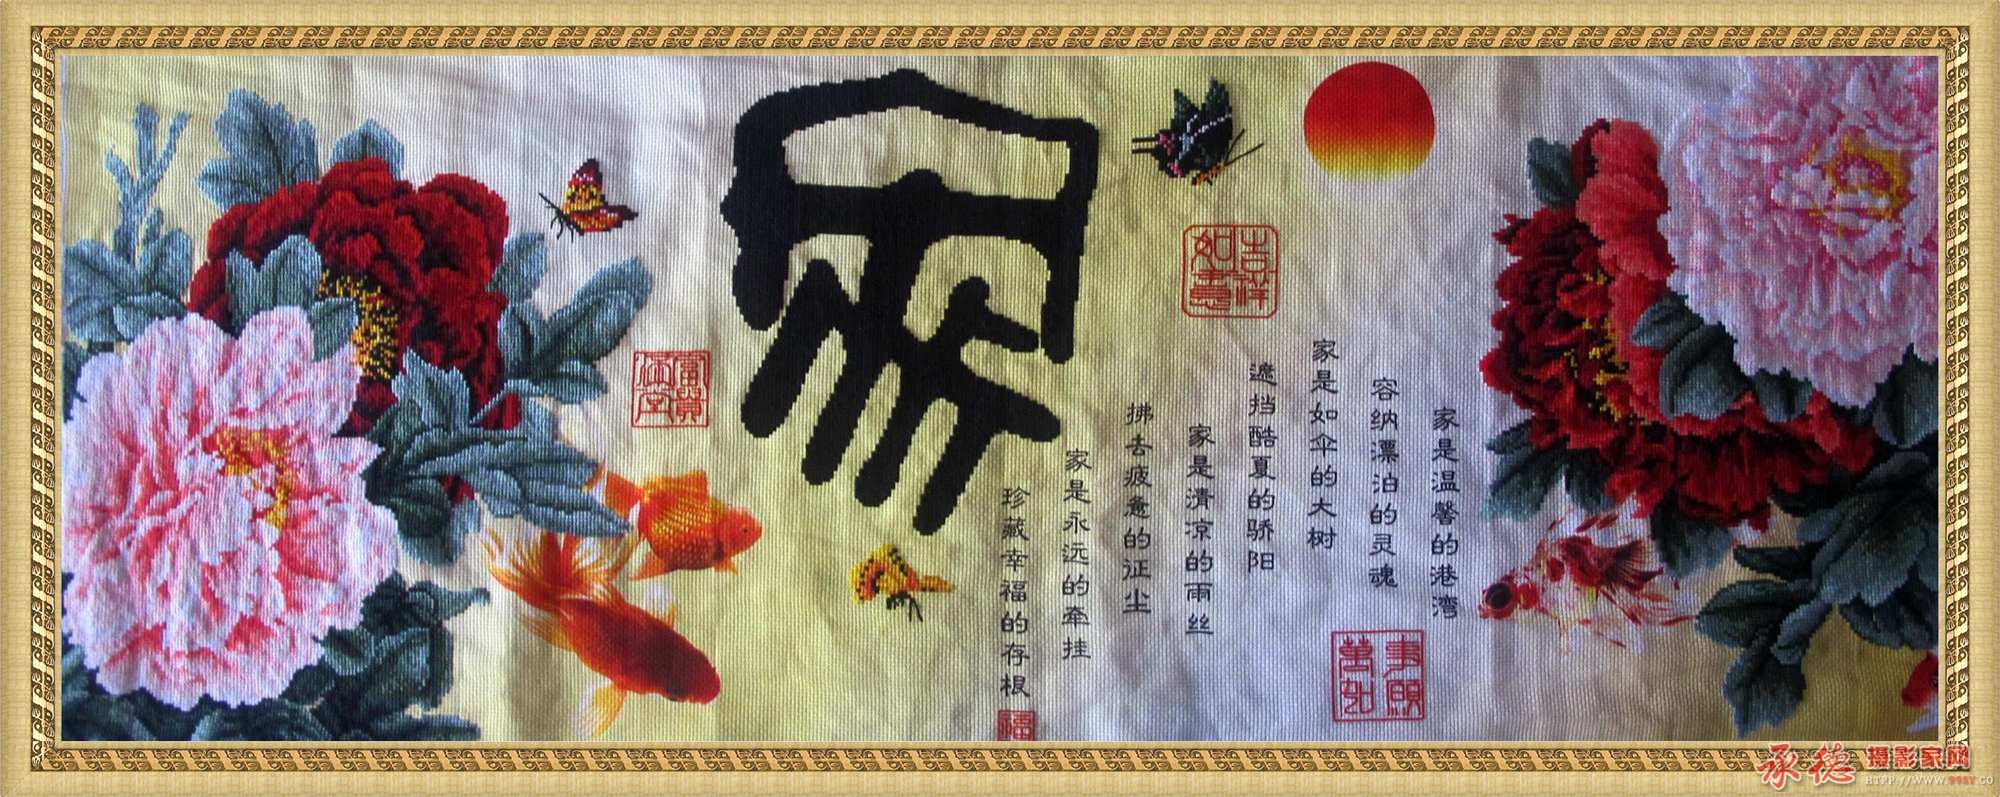 家
家是温馨的港湾
容纳漂泊的灵魂
家是如伞的大树
遮挡酷夏的骄阳
家是清凉的雨丝
拂去疲惫的征尘
家是永远的牵挂
珍藏幸福的存根
吉祥
如意
富貴
滿堂
事順
萬如
福
承德摄影家网